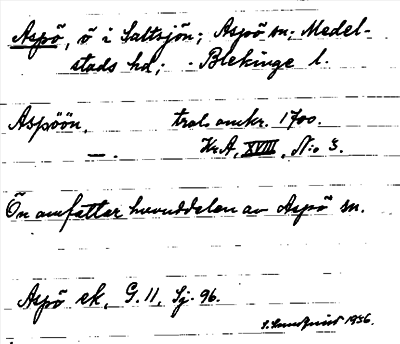 Aspö, ö i Saltsjön; Aspö sn; Medel-
stads hd; Blekinge l.
Aspöön. trol. omkr. 1700.
— . KrA, XVIII, N:o 3.
Ön omfattar huvuddelen av Aspö sn.
Aspö ek, G. 11, Sj. 96.
S. 1956.